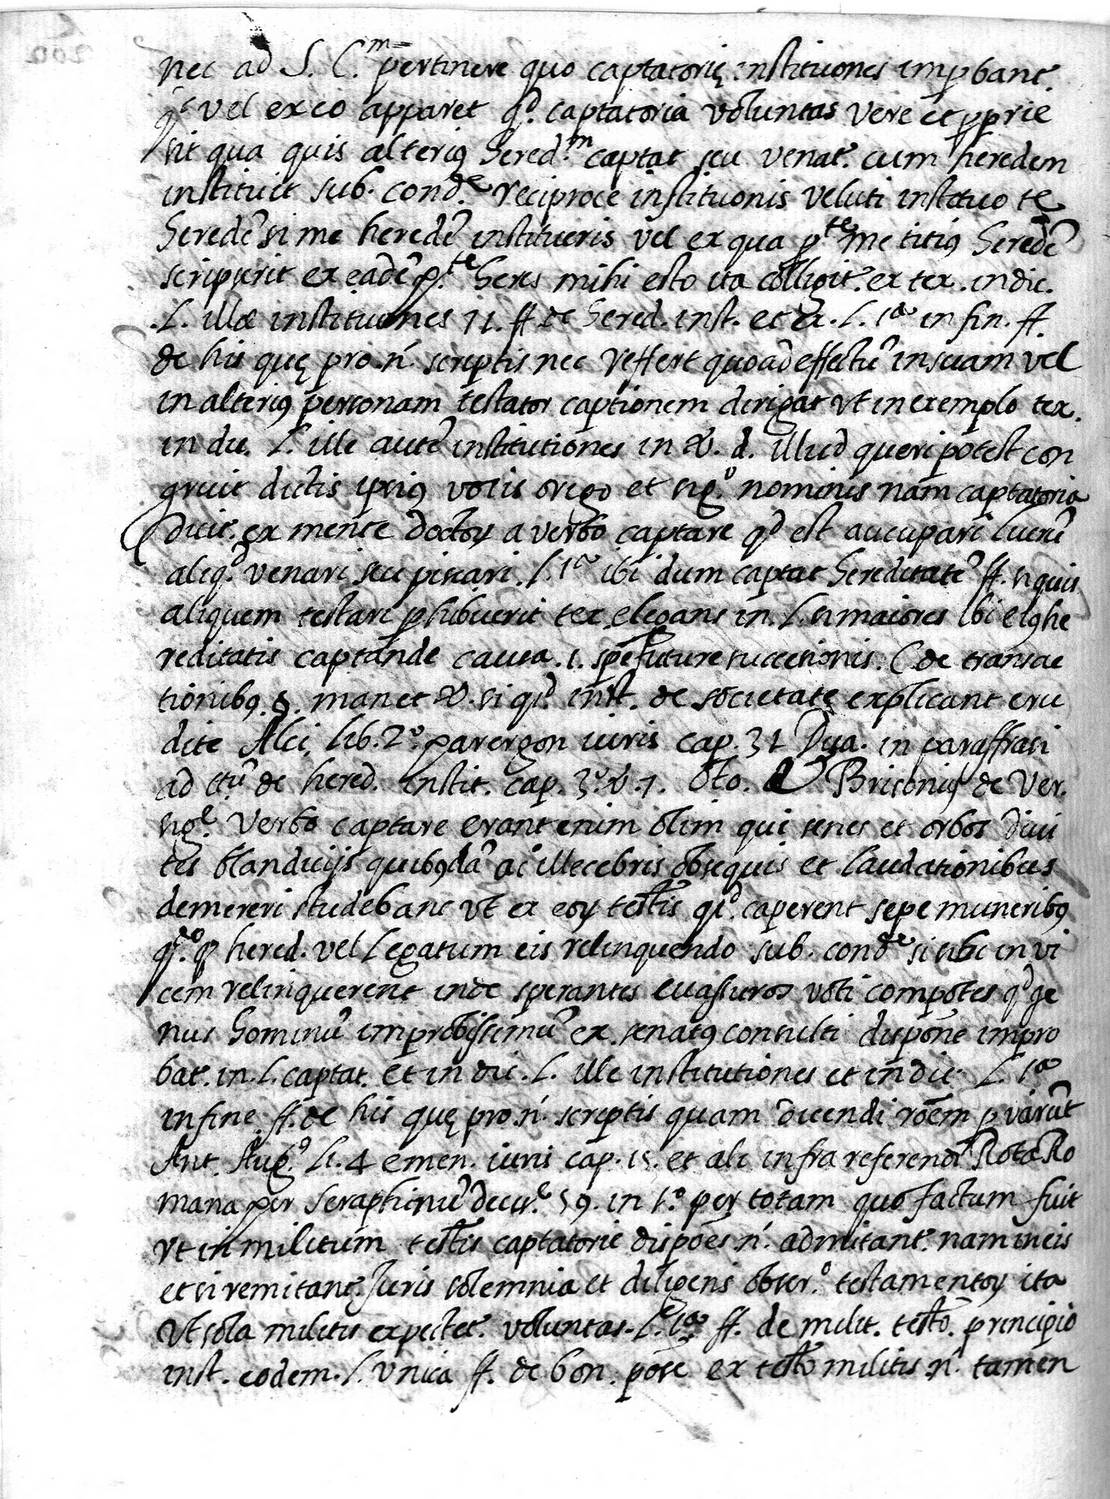 nec ad S. C.m pertinere quo captatorię institiones improbant.
qd vel ex eo apparet qd. captatoria voluntas vere et proprie
sit qua quis alterius hered.m captat seu venat. cum heredem
instituit sub. conde. reciproce institionis veluti instituo te
heredē si me heredē institueris vel ex qua pte me titius heredē
scripserit ex eadē pte heres mihi esto ita colligit. ex tex. in dic.
L. illæ institiones 71. ff de hered. inst. et L. 1a in fin. ff.
de his quę pro n. scriptis nec reffert quoad effectū in suam vel
in alterius personam testator captionem dirigat ut in exemplo tex.
in dic. L. ille autē institutiones in d. illud queri potest con
gruit dictis ipsius vocis origo et sig.o nominis nam captatoria
dicit. ex mente doctorum a verbo captare qd est aucupari lucrū
aliqd venari seu piscari. L. 1a ibi dum captat hereditatē ff. si quis
aliquem testari phibuerit tex elegans in L. si maiores ibi et he
reditatis captande causa. i. spe future successionis. C de transac
tionibus. §. manet si qd inst. de societate explicant eru
dite Alci. lib. 2o parergon iuris cap. 31 Dua. in paraffrasi
ad ttū de hered. instit. cap. 3. 7. Oto. Brisonius de ver.
sige. verbo captare erant enim olim qui senes et orbos divi
tes blandicijs quibusdā ac illecebris obsequis et laudationibus
demereri studebant ut ex eorum testis qd. caperent sepe muneribus
hered. vel Legatum eis relinquendo sub. conde si sibi in vi
cem relinquerent inde sperantes evasuros voti compotes qd ge
nus hominū improbissimū ex senatus consulti dispone impro
bat. in L. captat. et in dic. L. ille institutiones et in dic. L. 1a
in fine ff. de his quę pro n. scriptis quam dicendi roem pvarūt
Ant. Aug.o li. 4 emen. iuri cap. 15. et alii infra referendi Rota Ro
mana per seraphinū decise 59. in 1o per totam quo factum fuit
ut in militum testis captatorie dispoes n. admitant. nam in eis
etsi remitant. Juris solemnia et diligens obser.o testamentorum ita
ut sola militis expectet. voluntas L. 1a ff. de milit. testo. principio
inst. eodem. L. unica ff. de bon. posse ex testo militis n. tamen